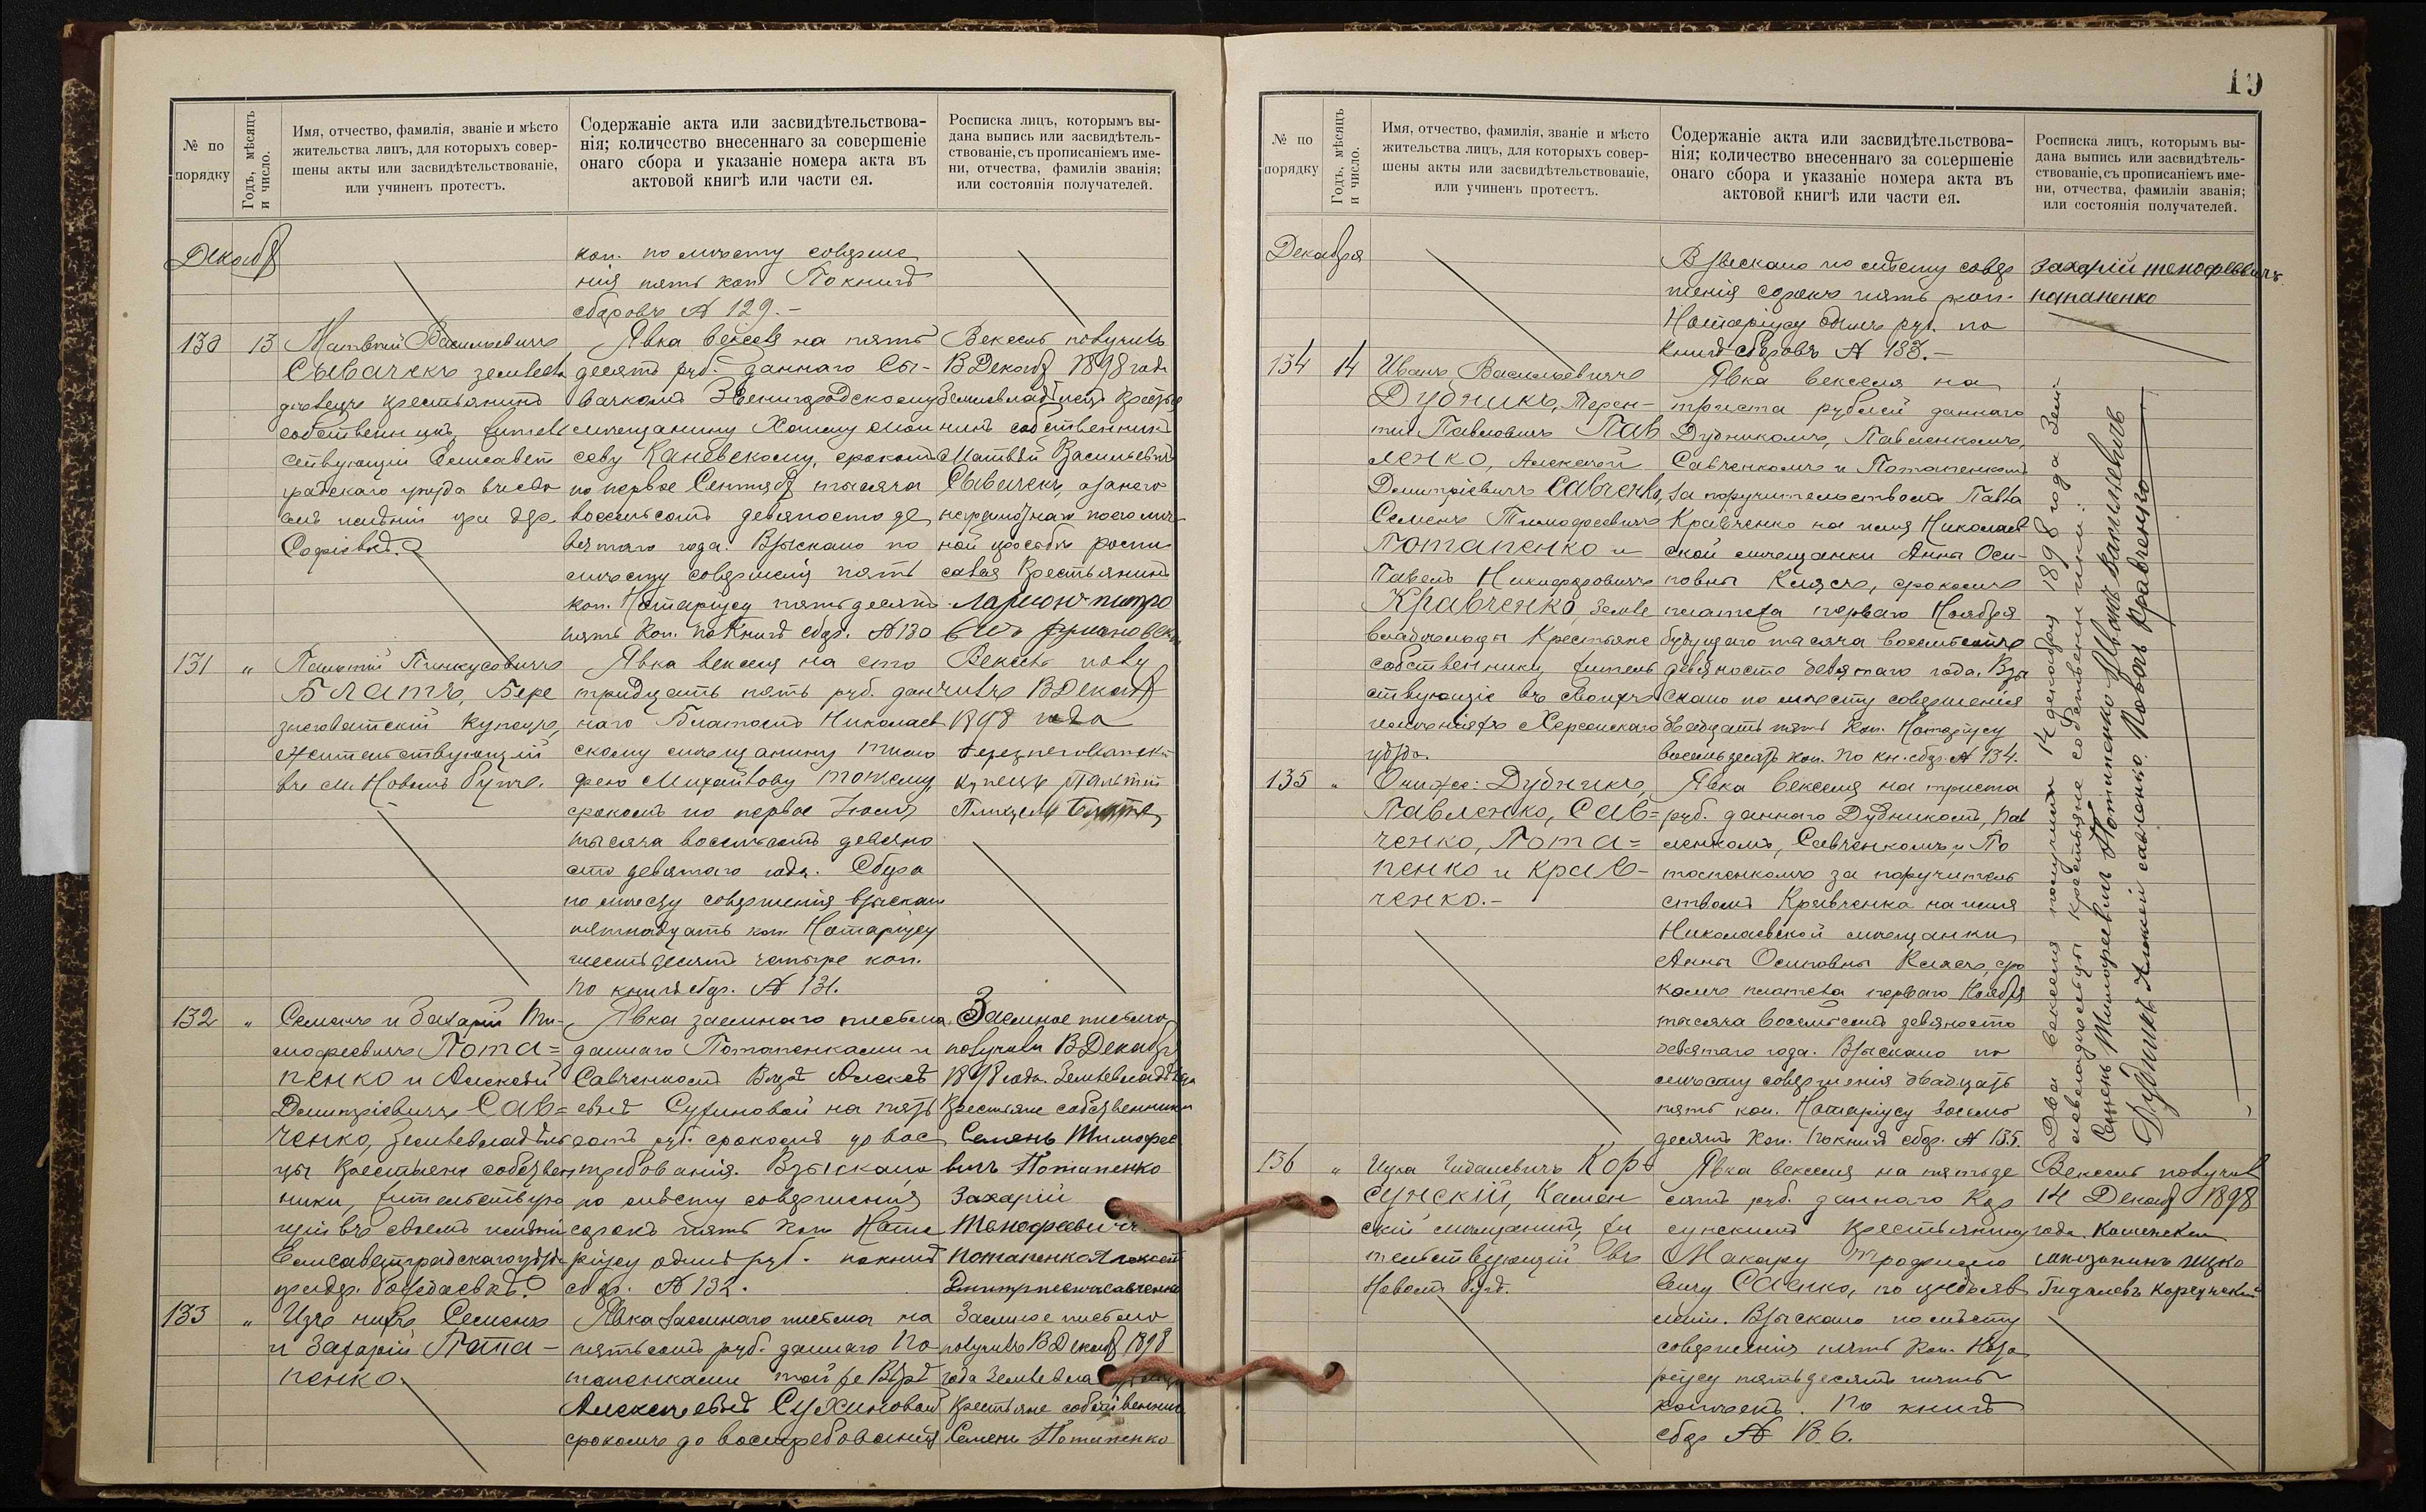 19
№ по порядку
Годъ, мѣсяцъ и число.
Имя, отчество, фамилія, званіе и мѣсто
жительства лицъ, для которыхъ совер-
шены акты или засвидѣтельствованіе,
или учиненъ протестъ.
Содержаніе акта или засвидѣтельствова-
нія; количество внесеннаго за совершеніе
онаго сбора и указаніе номера акта въ
актовой книгѣ или части ея.
Росписка лицъ, которымъ вы-
дана выпись или засвидѣтель-
ствованіе, съ прописаніемъ име-
ни, отчества, фамиліи званія;
или состоянія получателей.
Декабр
коп. по мѣсту соверше
нія пять коп. По книгѣ
сборовъ № 129.-
130 13
Матвѣй Васильевичъ
Сывачекъ землевла
дѣлецъ крестьянинъ
собственникъ, жител
ствующій Елисавет
градскаго уѣзда
при дер.
Софіевкѣ.
Явка векселя на пять
десятъ руб. даннаго Сы-
вачкомъ Звенигородскому
мѣщанину Хаиму
Каневскому, срокомъ
по первое Сентября тысяча
восемьсотъ девяносто де
вятаго года. Взыскано по
мѣсту совершенія пять
коп. Нотаріусу пятьдесятъ
пять коп. по книгѣ сбор. № 130
Вексель получилъ
13 Декабр 1898 года
Землевладѣлецъ Кресть
нинъ собственникъ
Матвѣй Васильевичъ
Сывачекъ, а за него
неграмотнаго по его лич-
ной просьбѣ роспи
сался Крестьянинъ
Ларион Питро
131 "
Пинкусовичъ
Блатъ, Бере
знеговатскій купецъ,
жительствующій
въ м. Новомъ Бугѣ.
Явка векселя на сто
тридцать пять руб. дан
наго Блатомъ Николаев
скому мѣщанину Тимо
фею Михайлову Тонкому,
срокомъ по первое Іюля
тысяча восемьсотъ девяно
сто девятаго года. Сбора
по мѣсту совершенія взыскано
пятнадцать коп. Нотаріусу
шестьдесятъ четыре коп.
По книгѣ сбор. № 131.
Вексель полу
чилъ 13 Декабр
1898 года
Березнеговатскі
купецъ
132 "
Семенъ и Захарій Ти-
мофеевичи Пота=
пенко и Алексѣй
Дмитріевичъ Сав=
ченко, Землевладѣль
цы Крестьяне собствен
ники, жительствую
щіе въ своемъ имѣніи
Елисаветградскаго уѣзда
при дер.
Явка заемнаго письма
даннаго Потапенками и
Савченкомъ Алексѣ
евнѣ Сухиновой на пять
сотъ руб. срокомъ до вос
требованія. Взыскано
по мѣсту совершенія
сорокъ пять коп. Нота
ріусу одинъ руб. по книгѣ
сбор. № 132.
Заемное письмо
получили 13 Декабр
1898 года. Землевладѣльцы
Крестьяне собственники
Семенъ Тимофее
вичъ Потапенко
Захарій
Тимофеевичъ
Потапенко Алексѣй
Дмитриевичъ Савченко
133 "
Изъ нихъ Семенъ
и Захарій Пота-
пенко.
Явка заемнаго письма на
пятьсотъ руб. даннаго По-
тапенками той же
Алексѣевнѣ Сухиновой
срокомъ до востребованія
Заемное письмо
получилъ 13 Декабр 1898
года Землевла
Крестьяне собственники
Семенъ Потапенко
№ по порядку
Годъ, мѣсяцъ и число.
Имя, отчество, фамилія, званіе и мѣсто
жительства лицъ, для которыхъ совер-
шены акты или засвидѣтельствованіе,
или учиненъ протестъ.
Содержаніе акта или засвидѣтельствова-
нія; количество внесеннаго за совершеніе
онаго сбора и указаніе номера акта въ
актовой книгѣ или части ея.
Росписка лицъ, которымъ вы-
дана выпись или засвидѣтель-
ствованіе, съ прописаніемъ име-
ни, отчества, фамиліи званія;
или состоянія получателей.
Декабря
Взыскано по мѣсту совер
шенія сорокъ пять коп.
Нотаріусу одинъ руб. по
книгѣ сборовъ № 133.-
Захарій Тимофеевичъ
потапенко
134 14
Иванъ Васильевичъ
Дудникъ, Терен-
тій Павловичъ Пав
ленко, Алексѣй
Дмитріевичъ Савченко,
Семенъ Тимофеевичъ
Потапенко и
Павелъ Никифоровичъ
Кравченко, Земле
владѣльцы Крестьяне
собственники, житель
ствующіе въ своихъ
имѣніяхъ Херсонскаго
уѣзда.
Явка векселя на
триста рублей даннаго
Дудникомъ, Павленкомъ,
Савченкомъ и Потапенкомъ
за поручительствомъ Павла
Кравченко на имя Николаев
ской мѣщанки Анны Оси-
повны Клясъ, срокомъ
платежа перваго Ноября
будущаго тысяча восемьсотъ
девяносто девятаго года. Взы
скано по мѣсту совершенія
двадцать пять коп. Нотаріусу
восемьдесятъ коп. По кн. сбор. № 134.
135 "
Они же: Дудникъ,
Павленко, Сав=
ченко, Пота=
пенко и Крав-
ченко.-
Явка векселя на триста
руб. даннаго Дудникомъ, Пав
ленкомъ, Савченкомъ и По
тапенкомъ за поручитель
ствомъ Кравченка на имя
Николаевской мѣщанки
Анны Осиповны Клясъ, сро
комъ платежа перваго Ноября
тысяча восемьсотъ девяносто
девятаго года. Взыскано по
мѣсту совершенія двадцать
пять коп. Нотаріусу восемь
десятъ коп. По книгѣ сбор. № 135.
Два векселя получили 14 декабря 1898 года Зем-
левладѣльцы крестьяне собственники:
Семенъ Тимофеевичъ Потапенко Иванъ Васильевичъ
Дудникъ Алексей савченко. Павелъ Кравченко
136 "
Ицка Гидалевичъ Кор-
сунскій, Камен
скій мѣщанинъ, жи
тельствующій въ
Новомъ Бугѣ.
Явка векселя на пятьде
сятъ руб. даннаго Кор
сунскимъ Крестьянину
Макару Трофимо
вичу Саенко, по предъяв
леніи. Взыскано по мѣсту
совершенія пять коп. Нота
ріусу пятьдесятъ пять
копѣекъ. По книгѣ
сбор № 136.
Вексель получилъ
14 Декабр 1898
года. Каменскій
мѣщанинъ Ицко
Гидалевъ Корсунскій